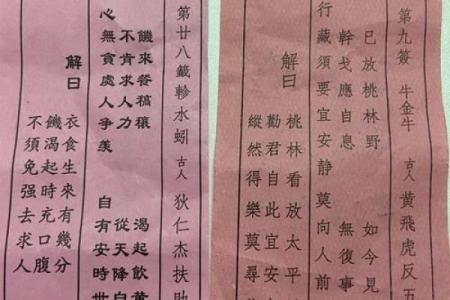 第九簽 牛金牛 古人 黃飛虎反五
已放桃林野 如今見
幹戈應自息 無復事
行藏須要宜安静 莫向人前
解曰
桃林看放太平
勸君自此宜安
縱然得樂莫尋
第廿八籤軫水蚓 古人 狄仁杰扶助
饑來餐稿穰 渴起飲黃
不肯求人力 從天降自
心無貪處人爭羨 自有安時世
解曰
衣食生來有幾分
饑渴起時充口腹
不須免强去求人